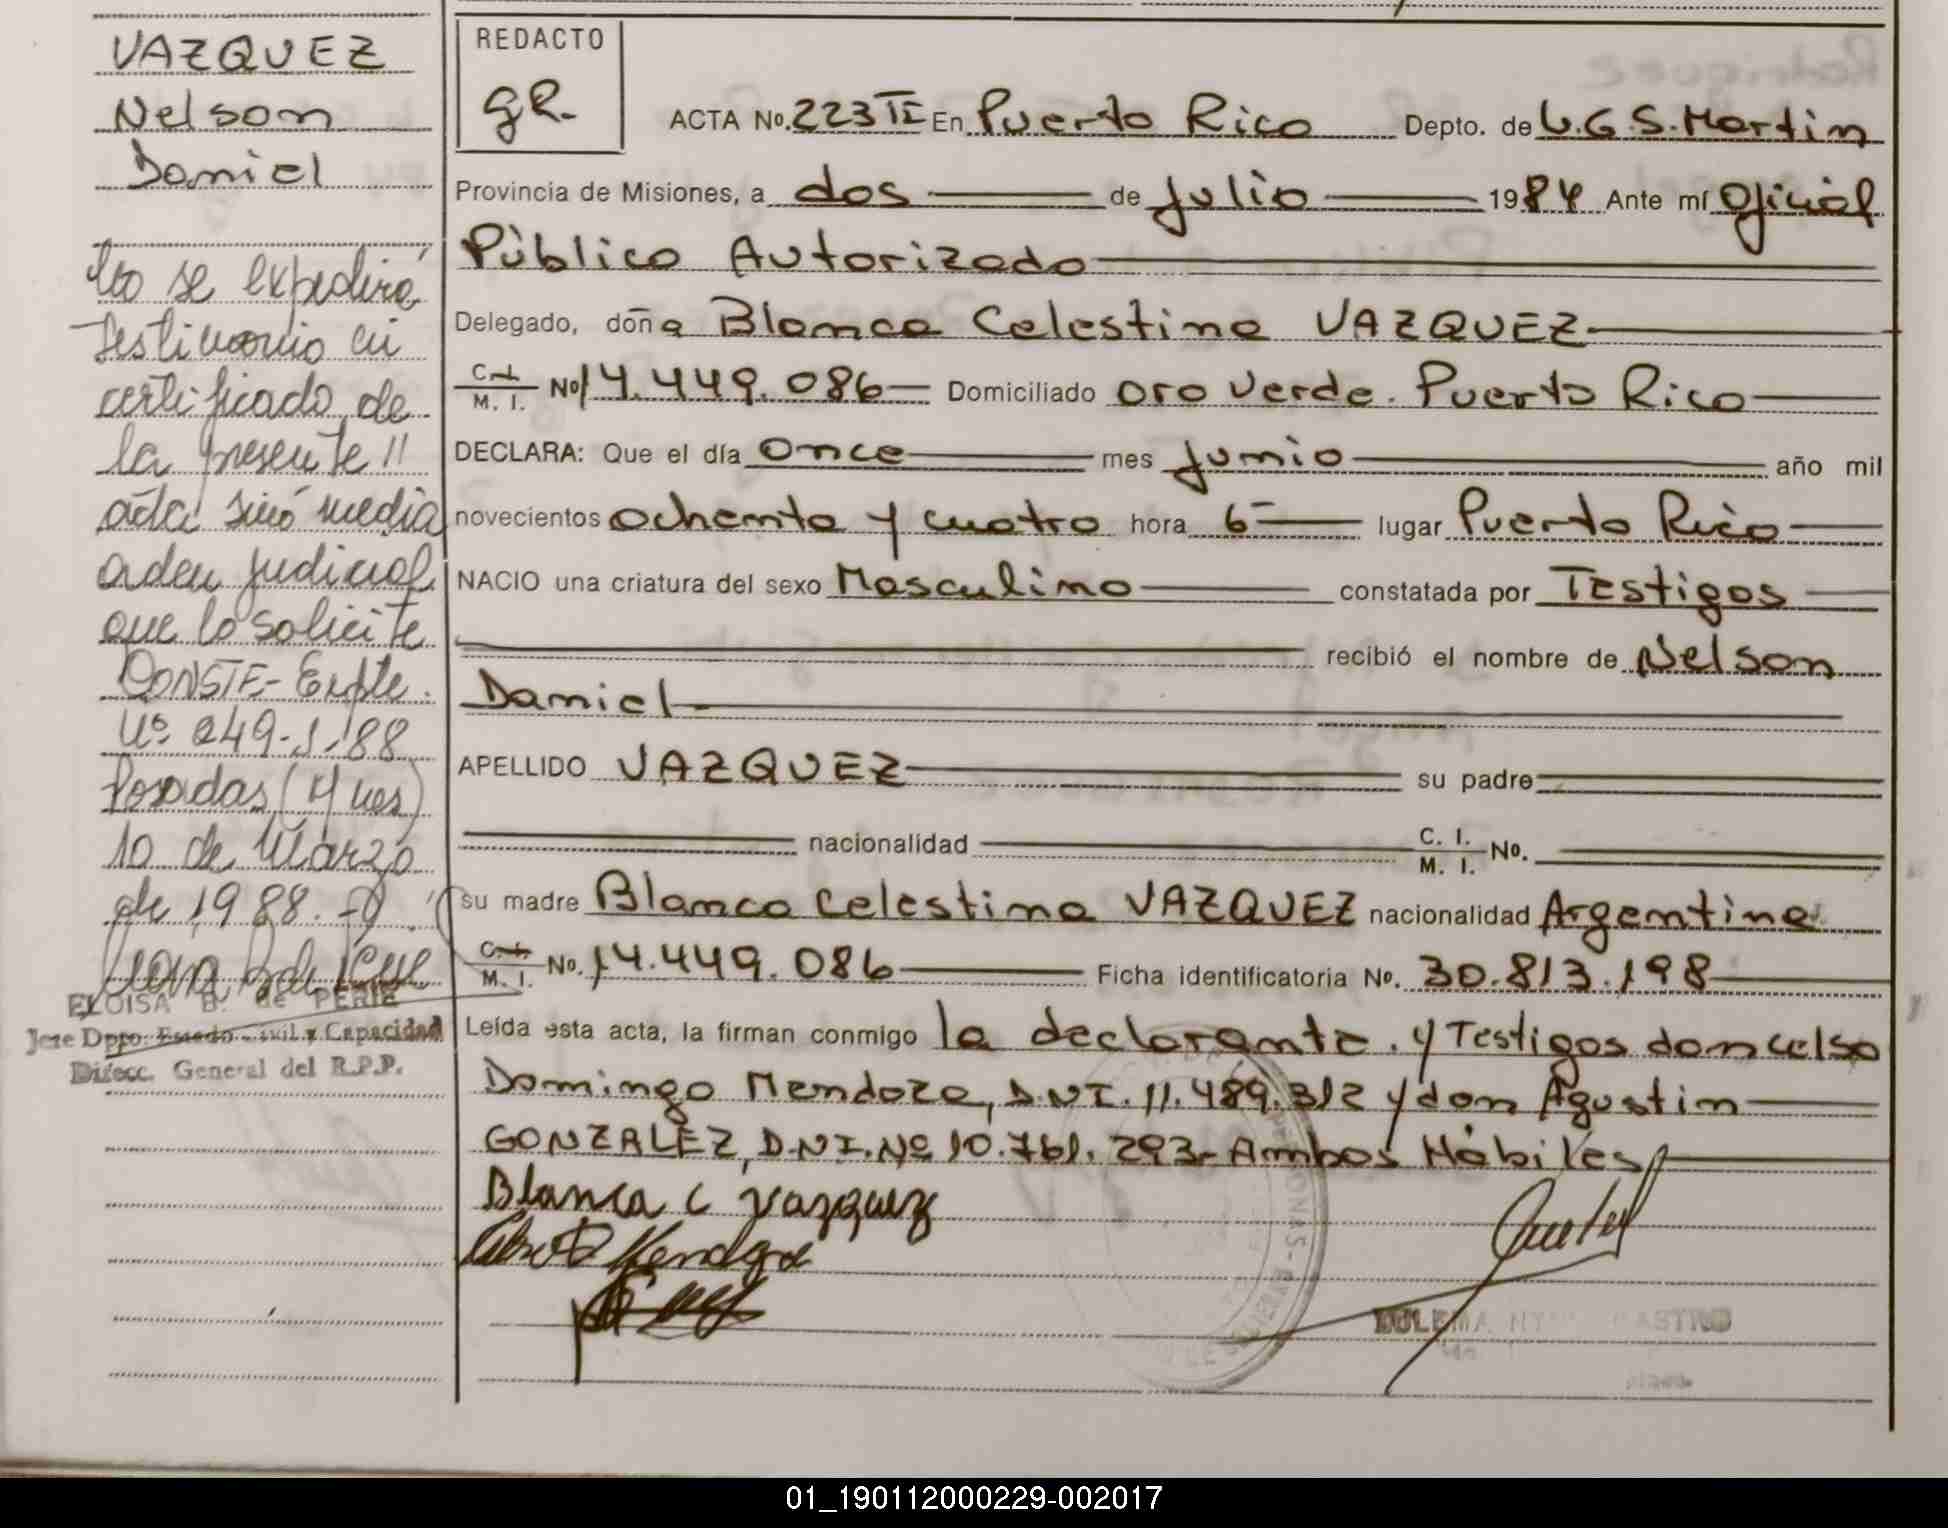 VAZQUEZ
Nelson
Daniel
No se expedirá
testimonio en
certificado de
la presente //
acta sinó media
orden judicial
que lo solicite
CONSTE- Expte.
Nº 249-J-88
Posadas (Mnes)
10 de Marzo
de 1988.-
ELOISA B. de PERIE
Jefe Dpto. Estado Civil y Capacidad
Direcc. General del R.P.P.
REDACTO
gR.
ACTA No. 223 TI En Puerto Rico Depto. de L.G.S. Martin
Provincia de Misiones, a dos de Julio 1984 Ante mí Oficial
Público Autorizado
Delegado, doña Blanca Celestina VAZQUEZ
C. I. / M. I. No 14.449.086 Domiciliado Oro Verde. Puerto Rico
DECLARA: Que el día Once mes Junio año mil
novecientos Ochenta y cuatro hora 6 lugar Puerto Rico
NACIO una criatura del sexo Masculino constatada por Testigos
recibió el nombre de Nelson
Daniel
APELLIDO VAZQUEZ su padre
nacionalidad C. I. / M. I. No.
su madre Blanca Celestina VAZQUEZ nacionalidad Argentina
C. I. / M. I. No. 14.449.086 Ficha identificatoria No. 30.813.198
Leída esta acta, la firman conmigo la declarante. y Testigos don Celso
Domingo Mendoza, D.N.I. 11.489.312 y don Agustin
GONZALEZ, D.N.I. Nº 10.761.293- Ambos Hábiles
Blanca C Vazquez
Mendoza
01_190112000229-002017